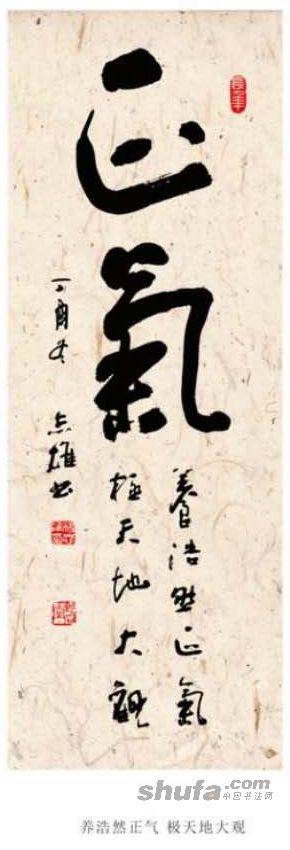 正氣
養浩然正氣
極天地大觀
丁酉冬 志雄書
shufa.com
中国书法网
养浩然正气 极天地大观